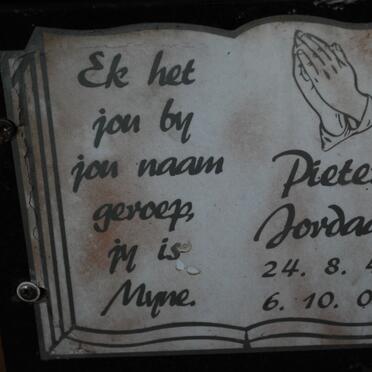 Ek het
jou by
jou naam
geroep,
jy is
Myne.
Piete
Jorda
24. 8. 4
6. 10. 0